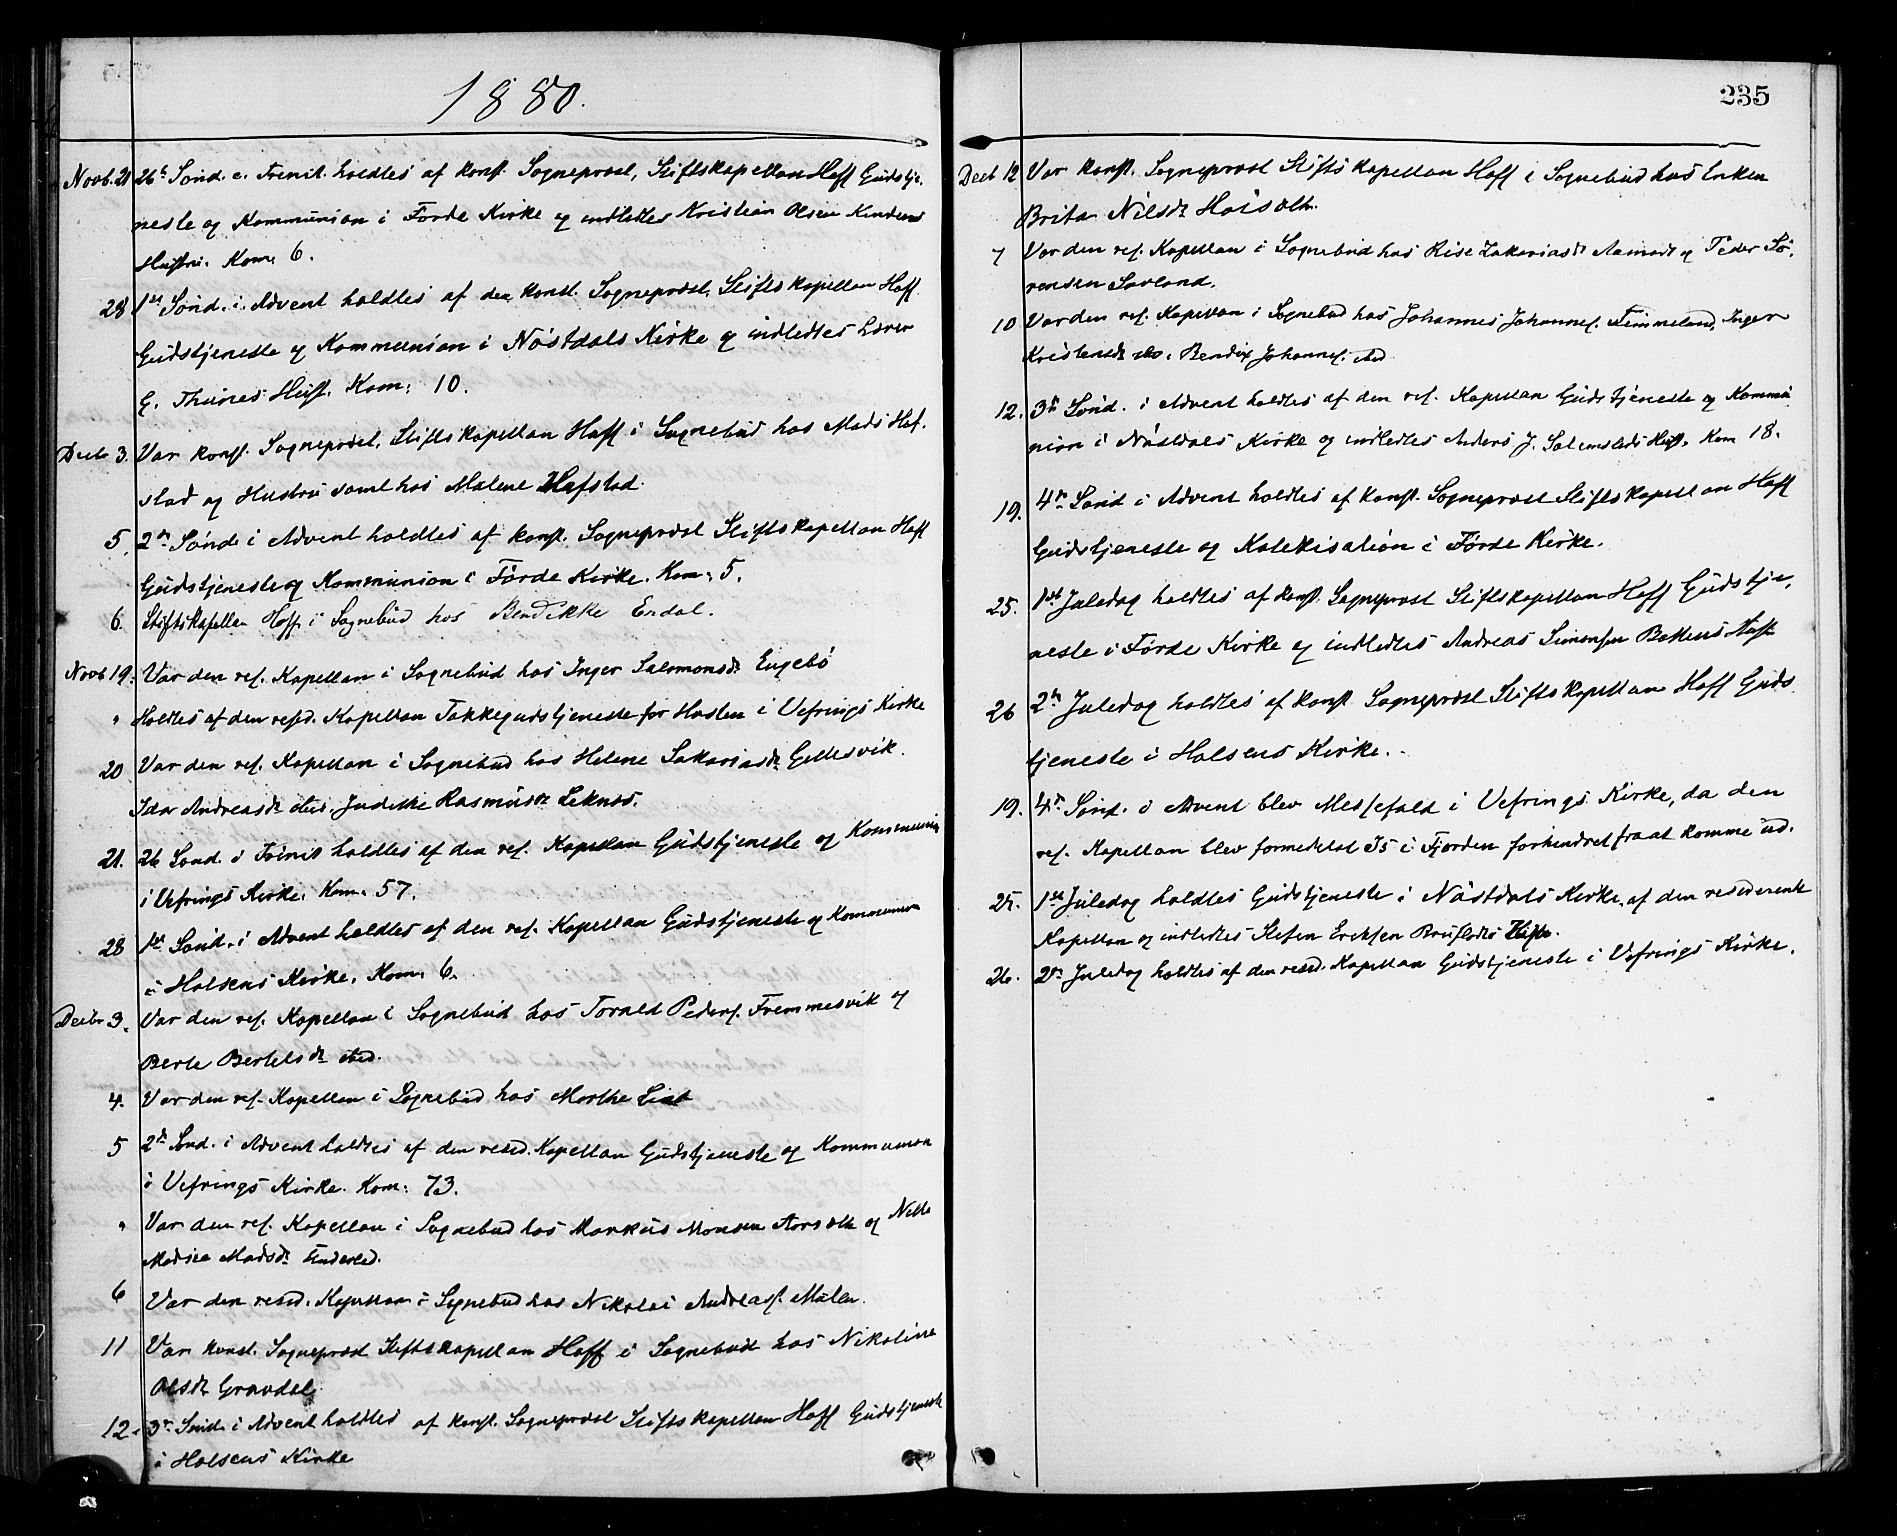 1880.
Novb. 21 26de Sønd. e. Trenit. holdtes af konst. Sognepræst, Stiftskapellan Hoff Gudstje-
neste og Kommunion i Førde Kirke og indledtes Kristian Olsen
Hustru. Kom. 6.
28 1ste Sønd. i Advent holdtes af den konst. Sognepræst, Stiftskapellan Hoff
Gudstjeneste og Kommunion i Nøstdals Kirke og indledtes Lærer
G. Thunes Hust. Kom: 10.
Decbr 3. Var konst. Sognepræst, Stiftskapellan Hoff i Sognebud hos Mads Haf-
stad og Hustru samt hos Malene Hafstad
5. 2den Sønd. i Advent holdtes af konst. Sognepræst Stiftskapellan Hoff
Gudstjeneste og Kommunion i Førde Kirke. Kom: 5.
6. Stiftskapellan Hoff i Sognebud hos Bendikke Erdal.
Novb 19. Var den res. Kapellan i Sognebud hos Inger Salomonsdr Engebø
" Holdtes af den resid. Kapellan Takkegudstjeneste for Høsten i Vefrings Kirke
20 Var den res. Kapellan i Sognebud hos Helene Sakariasdr Gellesvik
Ida Andreasdr sted. Judithe Rasmusdr Leknes.
21. 26 Sønd. i Trinit. holdtes af den res. Kapellan Gudstjeneste og Kommunion
i Vefrings Kirke. Kom. 57.
28 1ste Sønd. i Advent holdtes af den res. Kapellan Gudstjeneste og Kommunion
i Holsens Kirke. Kom. 6.
Decbr 3. Var den res. Kapellan i Sognebud hos Torald Peders. Fremmesvik og
Berte Bertelsdr sted.
4. Var den res. Kapellan i Sognebud hos Marthe
5 2den Sønd. i Advent holdtes af den resid. Kapellan Gudstjeneste og Kommunion
i Vefrings Kirke. Kom: 73.
" Var den res. Kapellan i Sognebud hos Markus Monsen og
Madsea Madsdr
6 Var den resid. Kapellan i Sognebud hos Nikolai Andreas. Malen.
11 Var konst. Sognepræst Stiftskapellan Hoff i Sognebud hos Nikoline
Olsdr Gravdal.
12. 3die Sønd. i Advent holdtes af konst. Sognepræst Stiftskapellan Hoff Gudstjeneste
i Holsens Kirke
235
Decb 12 Var konst. Sognepræst Stiftskapellan Hoff i Sognebud hos Enken
Brita Nilsdr
7 Var den res. Kapellan i Sognebud hos Lise Zakariasdr og Peder Sø-
rensen
10 Var den res. Kapellan i Sognebud hos Johannes Johannes. Timmeland, Inger
Kristensdr sto. Bendix Johannes. sted
12. 3die Sønd. i Advent holdtes af den res. Kapellan Gudstjeneste og Kommu-
nion i Nøstdals Kirke og indledtes Anders J. Hust. Kom 18.
19. 4de Sønd i Advent holdtes af konst. Sognepræst Stiftskapellan Hoff
Gudstjeneste og Katekisation i Førde Kirke.
25. 1ste Juledag holdtes af konst. Sognepræst Stiftskapellan Hoff Gudstje-
neste i Førde Kirke og indledtes Andreas Simonsen Hust
26 2den Juledag holdtes af konst Sogneprest Stiftskapellan Hoff Guds
tjeneste i Holsens Kirke.
19. 4de Sønd. i Advent blev Messefald i Vefrings Kirke, da den
res. Kapellan blev formedelst Is i Fjorden forhindret fra at komme ud.
25. 1ste Juledag holdtes Gudstjeneste i Nøstdals Kirke af den residerende
Kapellan og indledtes Stefen Eriksen Hust.
26. 2den Juledag holdtes af den resid. Kapellan Gudstjeneste i Vefrings Kirke.